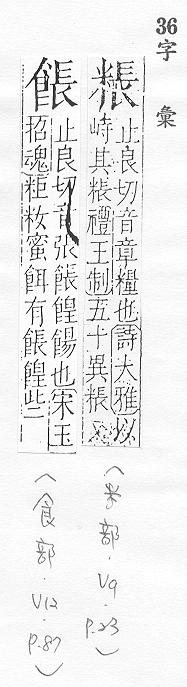 36
字彙
粻 止良切音章糧也詩大雅以
峙其粻禮王制五十異粻
(米部.V9.P.23)
餦 止良切音張餦餭餳也宋玉
招魂粔籹蜜餌有餦餭些
(食部.V12.P.87)